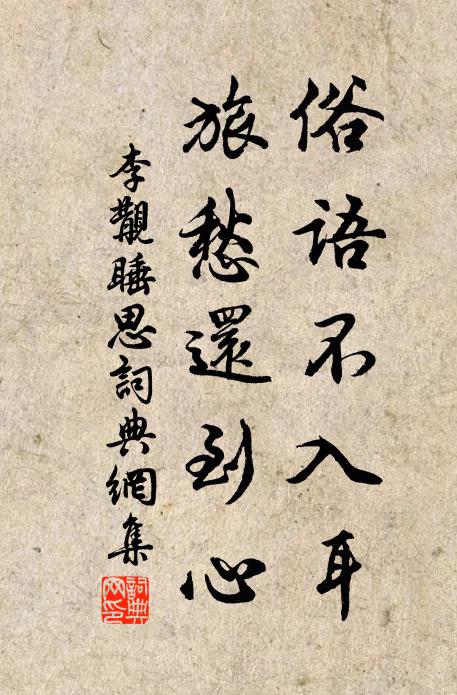 俗語不入耳
旅愁還到心
李覯睡思詞典網集
詞典網印